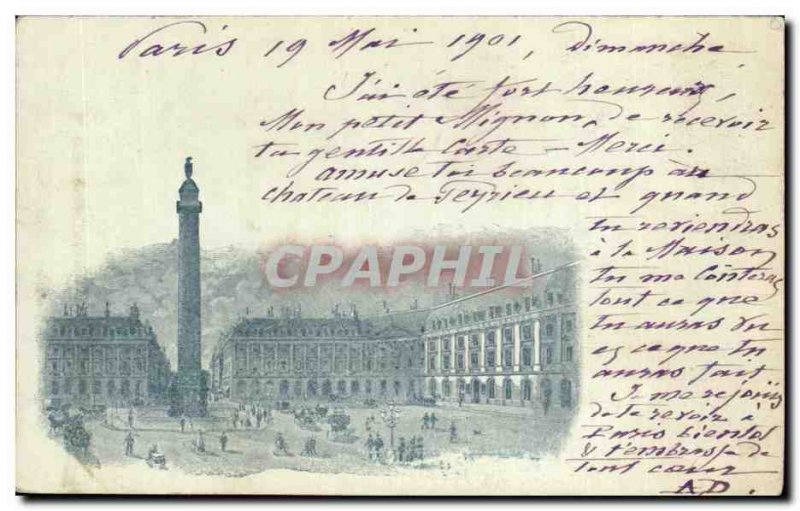 Paris 19 Mai 1901, Dimanche
J'ai été fort heureux,
Mon petit Mignon, de recevoir
ta gentille Carte - Merci.
amuse toi beaucoup au
chateau de Peyrieu et quand
tu reviendras
à la Maison
tu me Conteras
tout ce que
tu auras vu
et ce que tu
auras fait
Je me rejouis
de te revoir à
Paris bientot
& t'embrasse de
tout coeur
AD.
CPARHIL